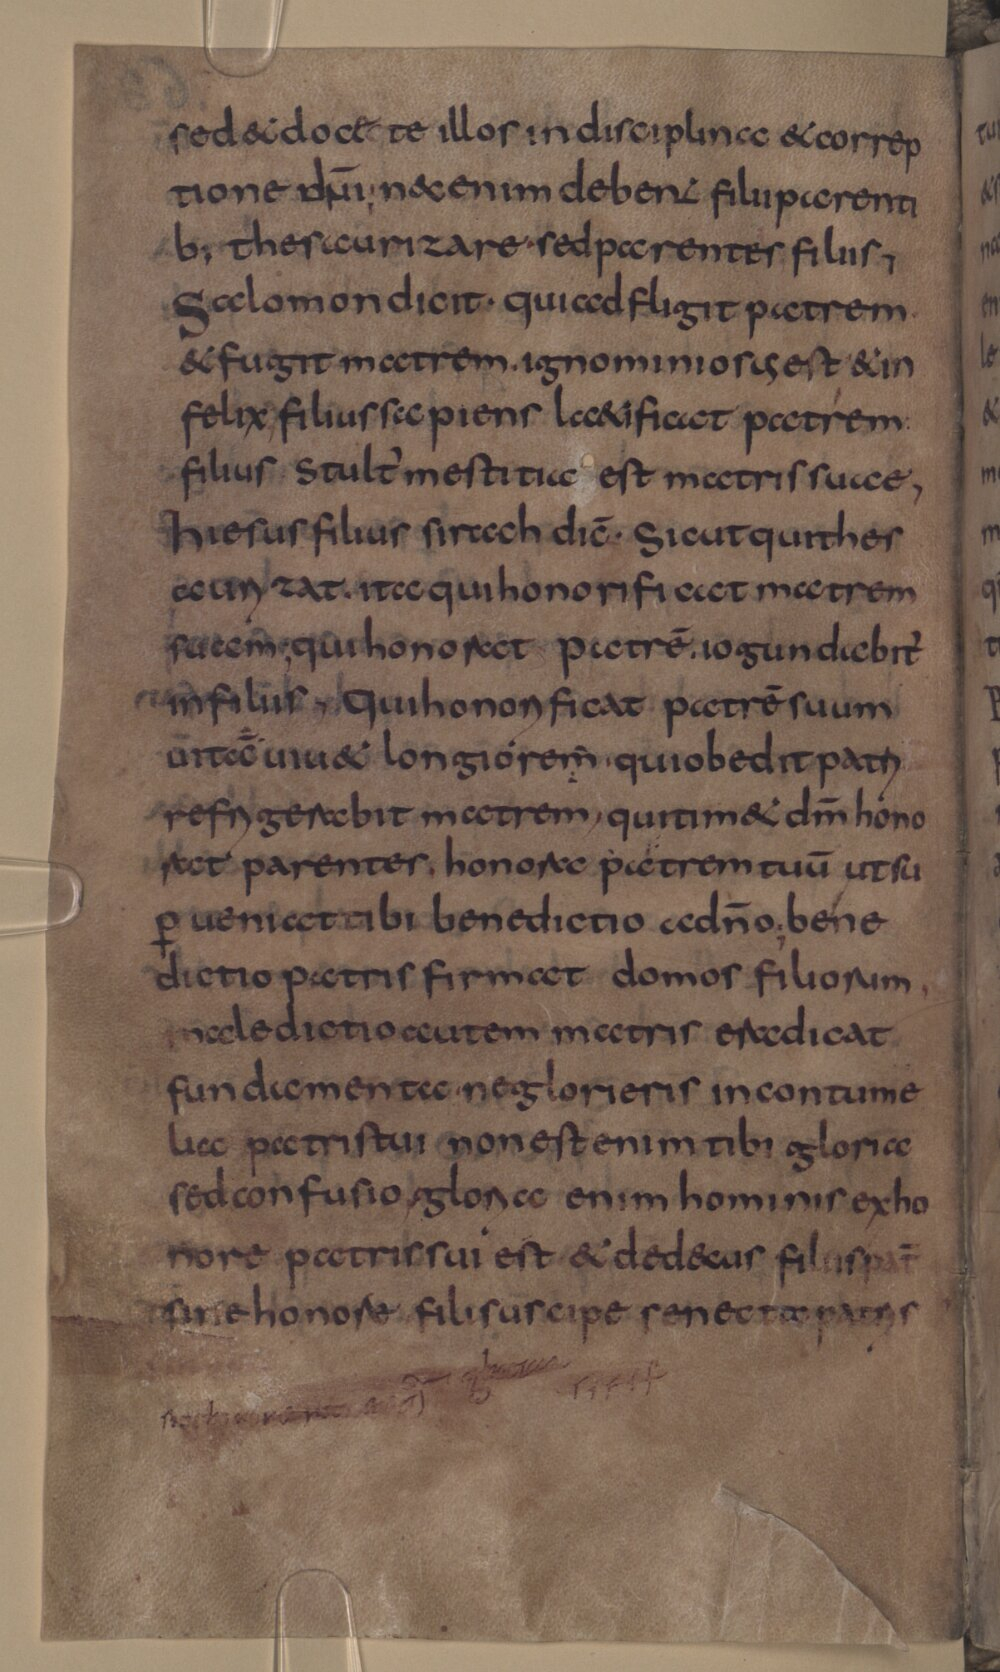 sed & doc& te illos in disciplina & correp
tione dn̄i, n&enim debent filii parenti
b; thesaurizare· sed parentes filiis,
Salomon dicit· qui adfligit patrem
& fugit matrem. ignominiosus est & in
felix, filius sapiens laetificat patrem
filius stult' mestitia est matris suae,
hiesus filius sirach dic̄· Sicut qui thes
aurizat. ita qui honorificat matrem
suam, qui honorat patrē. iogundabit'
in filiis, Qui honorificat patrē suum
uitā uiu& longiorem. qui obedit patri
refrigerabit matrem, qui tim& dm̄ hono
rat parentes. honora patrem tuū ut su
p̱ueniat tibi benedictio a dn̄o, bene
dictio patris firmat domos filiorum,
maledictio autem matris eradicat
fundamenta· ne glorieris in contume
lia patris tui non est enim tibi gloria
sed confusio, gloria enim hominis ex ho
nore patris sui est & dedecus filiis pat̄
sine honore fili suscipe senecta patris